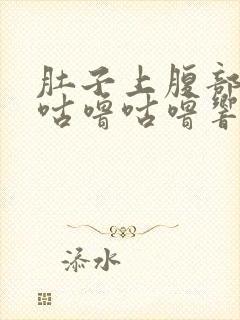 肚子上腹部
咕噜咕噜響
添水